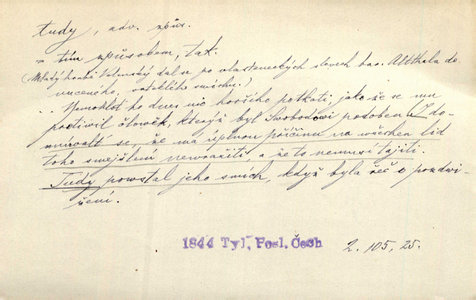 tudy, adv. způs.
= tím způsobem, tak.
(Mladý hrabě Valenský dal se po vlasteneckých slovech bar. Altthala do
nuceného, vzteklého smíchu.)
.. Nemohlo ho dnes nic horšího potkati, jako že se mu
protivil člověk, kterýž byl Svobodovi podoben. I do-
mníwalť se, že má úplnou příčinu na všechen lid
toho smejšlení newražiti a že to nemusí tajiti.
Tudy powstal jeho smích, když byla řeč o pozdwi-
žení.
1844 Tyl, Posl. Čech 2. 105, 25.